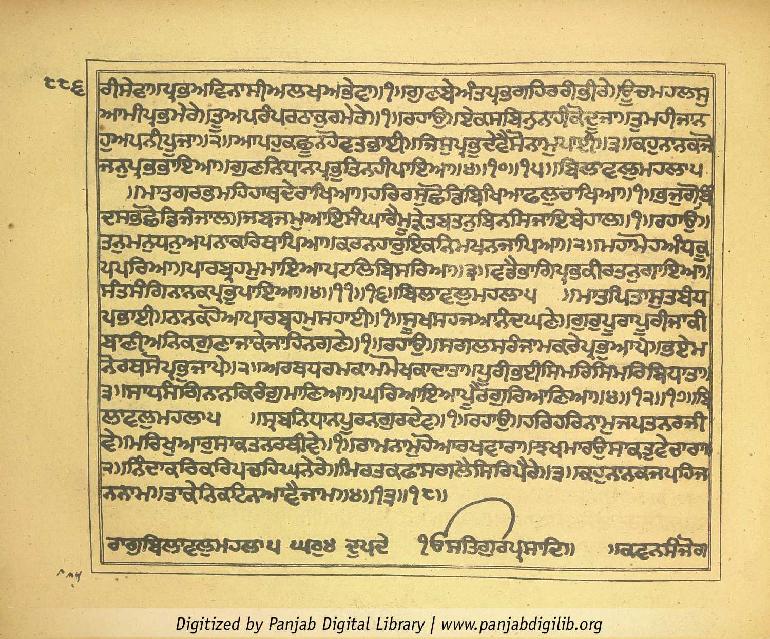 ੮੮੬
ਰੀਸੇਵਾ॥ਪ੍ਰਭਅਬਿਨਾਸੀਅਲਖਅਭੇਵਾ॥੧॥ਗੁਣਬੇਅੰਤਪ੍ਰਭਗਹਿਰਗੰਭੀਰੇ॥ਊਚਮਹਲਸੁ
ਆਮੀਪ੍ਰਭਮੇਰੇ॥ਤੂਅਪਰੰਪਰਠਾਕੁਰਮੇਰੇ॥੧॥ਰਹਾਉ॥ਏਕਸਬਿਨੁਨਾਹੀਕੋਦੂਜਾ॥ਤੁਮਹੀਜਾਨ
ਹੁਅਪਨੀਪੂਜਾ॥੨॥ਆਪਹੁਕਛੂਨਹੋਵਤਭਾਈ॥ਜਿਸੁਪ੍ਰਭੁਦੇਵੈਸੋਨਾਮੁਪਾਈ॥੩॥ਕਹੁਨਾਨਕਜੋ
ਜਨੁਪ੍ਰਭਭਾਇਆ॥ਗੁਣਨਿਧਾਨਪ੍ਰਭੁਤਿਨਹੀਪਾਇਆ॥੪॥੧੦॥੧੫॥ਬਿਲਾਵਲੁਮਹਲਾ੫
॥ਮਾਤਗਰਭਮਹਿਹਾਥਦੇਰਾਖਿਆ॥ਹਰਿਰਸੁਛੋਡਿਬਿਖਿਆਫਲੁਚਾਖਿਆ॥੧॥ਭਜੁਗੋਬਿੰ
ਦਸਭਛੋਡਿਜੰਜਾਲ॥ਜਬਜਮੁਆਇਸੰਘਾਰੈਮੂੜੇਤਬਤਨੁਬਿਨਸਿਜਾਇਬੇਹਾਲ॥੧॥ਰਹਾਉ॥
ਤਨੁਮਨੁਧਨੁਅਪਨਾਕਰਿਥਾਪਿਆ॥ਕਰਨਹਾਰੁਇਕਨਿਮਖਨਜਾਪਿਆ॥੨॥ਮਹਾਮੋਹਅੰਧਕੂ
ਪਪਰਿਆ॥ਪਾਰਬ੍ਰਹਮੁਮਾਇਆਪਟਲਿਬਿਸਰਿਆ॥੩॥ਵਡੈਭਾਗਿਪ੍ਰਭਕੀਰਤਨੁਗਾਇਆ॥
ਸੰਤਸੰਗਿਨਾਨਕਪ੍ਰਭੁਪਾਇਆ॥੪॥੧੧॥੧੬॥ਬਿਲਾਵਲੁਮਹਲਾ੫ ॥ਮਾਤਪਿਤਾਸੁਤਬੰਧ
ਪਭਾਈ॥ਨਾਨਕਹੋਆਪਾਰਬ੍ਰਹਮੁਸਹਾਈ॥੧॥ਸੂਖਸਹਜਆਨੰਦਘਣੇ॥ਗੁਰੁਪੂਰਾਪੂਰੀਜਾਕੀ
ਬਾਣੀਅਨਿਕਗੁਣਾਜਾਕੇਜਾਹਿਨਗਣੇ॥੧॥ਰਹਾਉ॥ਸਗਲਸਰੰਜਾਮਕਰੇਪ੍ਰਭੁਆਪੇ॥ਭਏਮ
ਨੋਰਥਸੋਪ੍ਰਭੁਜਾਪੇ॥੨॥ਅਰਥਧਰਮਕਾਮਮੋਖਕਾਦਾਤਾ॥ਪੂਰੀਭਈਸਿਮਰਿਸਿਮਰਿਬਿਧਾਤਾ॥
੩॥ਸਾਧਸੰਗਿਨਾਨਕਿਰੰਗੁਮਾਣਿਆ॥ਘਰਿਆਇਆਪੂਰੈਗੁਰਿਆਣਿਆ॥੪॥੧੨॥੧੭॥ਬਿ
ਲਾਵਲੁਮਹਲਾ੫ ॥ਸ੍ਰਬਨਿਧਾਨਪੂਰਨਗੁਰਦੇਵ॥੧॥ਰਹਾਉ॥ਹਰਿਹਰਿਨਾਮੁਜਪਤਨਰਜੀ
ਵੇ॥ਮਰਿਖੁਆਰੁਸਾਕਤਨਰਥੀਵੇ॥੧॥ਰਾਮਨਾਮੁਹੋਆਰਖਵਾਰਾ॥ਝਖਮਾਰਉਸਾਕਤੁਵੇਚਾਰਾ॥
੨॥ਨਿੰਦਾਕਰਿਕਰਿਪਚਹਿਘਨੇਰੇ॥ਮਿਰਤਕਫਾਸਗਲੈਸਿਰਿਪੈਰੇ॥੩॥ਕਹੁਨਾਨਕਜਪਹਿਜ
ਨਨਾਮ॥ਤਾਕੇਨਿਕਟਿਨਆਵੈਜਾਮ॥੪॥੧੩॥੧੮॥
ਰਾਗੁਬਿਲਾਵਲੁਮਹਲਾ੫ ਘਰੁ੪ ਦੁਪਦੇ ੴਸਤਿਗੁਰਪ੍ਰਸਾਦਿ॥ ॥ਕਵਨਸੰਜੋਗ
Digitized by Panjab Digital Library | www.panjabdigilib.org